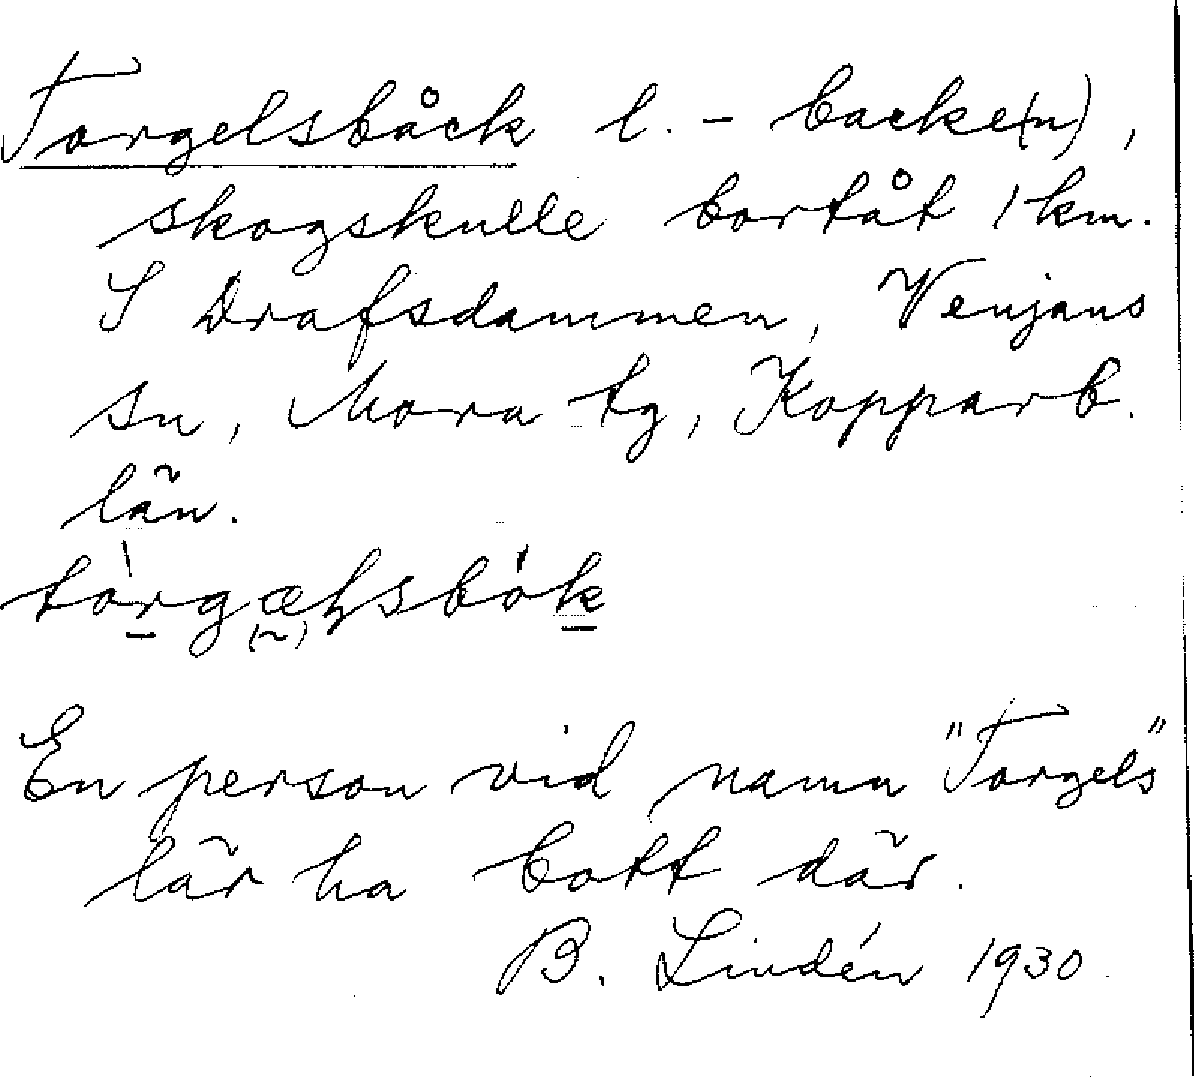 Torgelsbåck l. - backe(n),
skogskulle bortåt 1 km.
S Drafsdammen, Venjans
sn, Mora tg, Kopparb.
län.
En person vid namn "Torgels"
lär ha bott där.
B. Lindén 1930